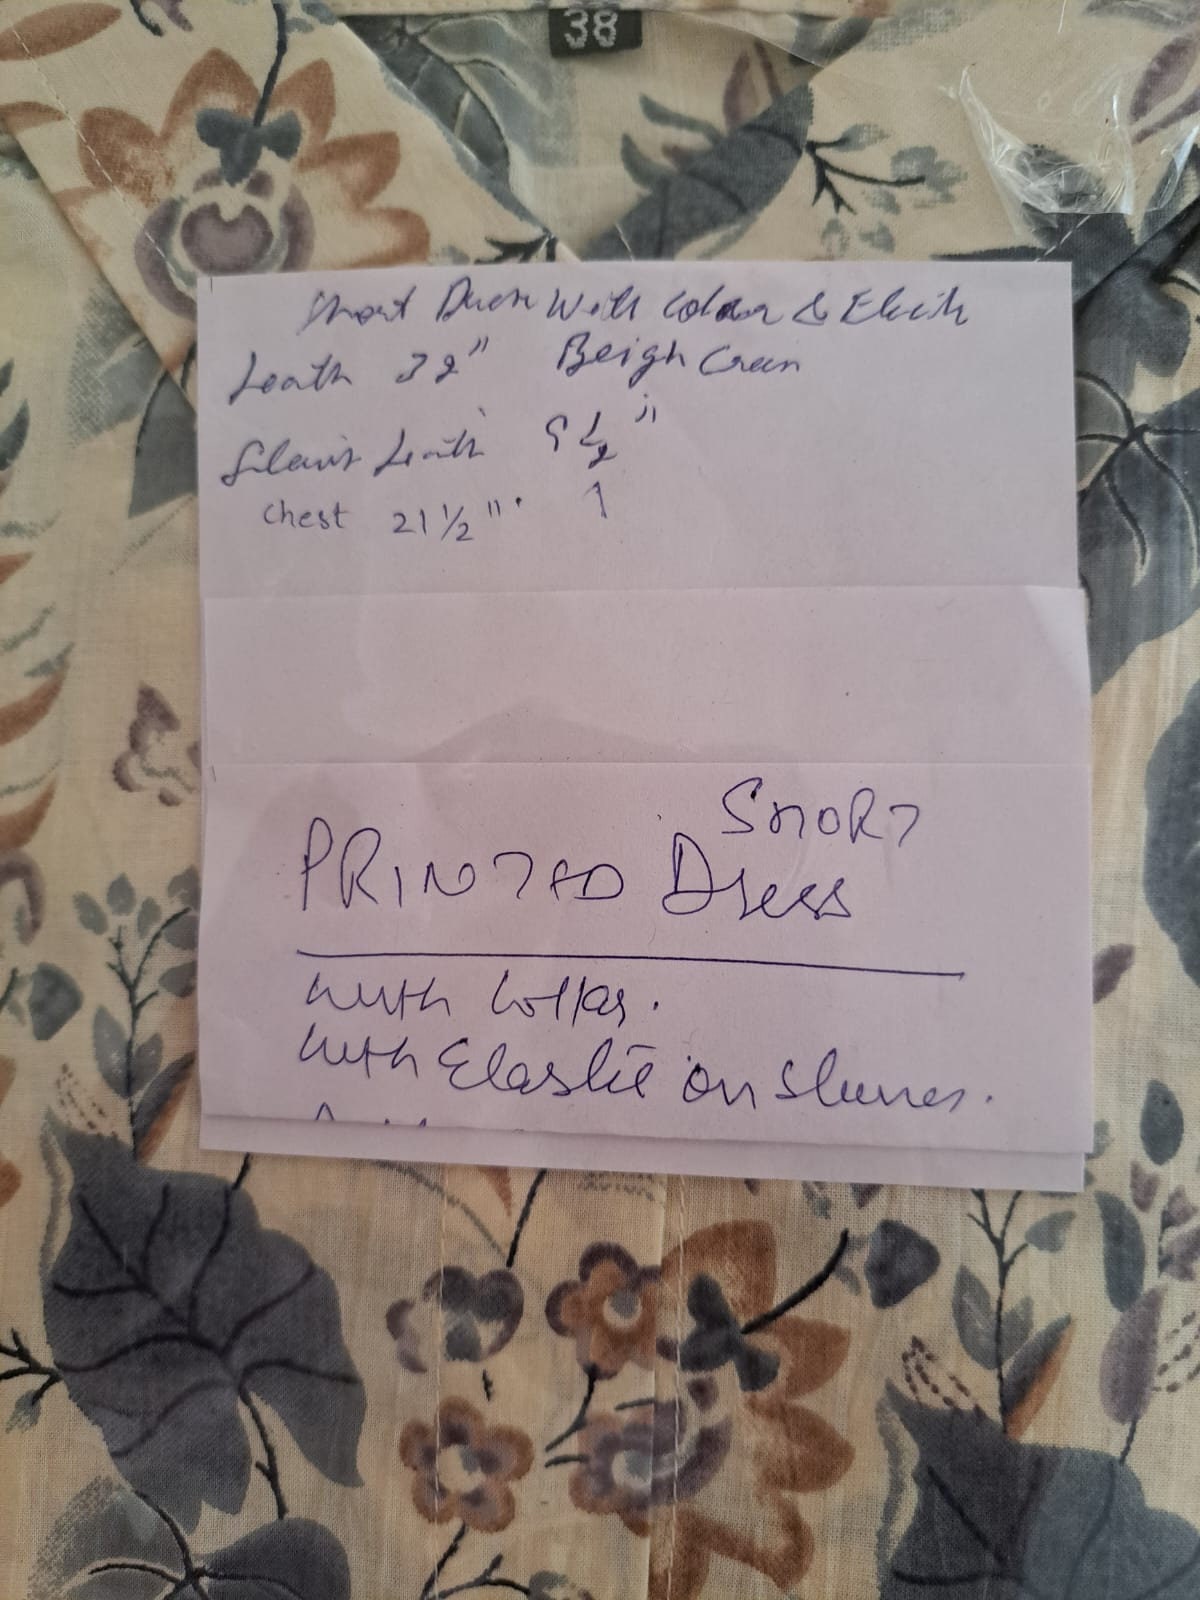 38
Short Dress With Coloar & Elastic
Leath 32" Beigh Creem
Sleavs Leath 9 1/2"
Chest 21 1/2".
SHORT
PRINTED Dress
with Collar.
with Elastic on Sleeves.